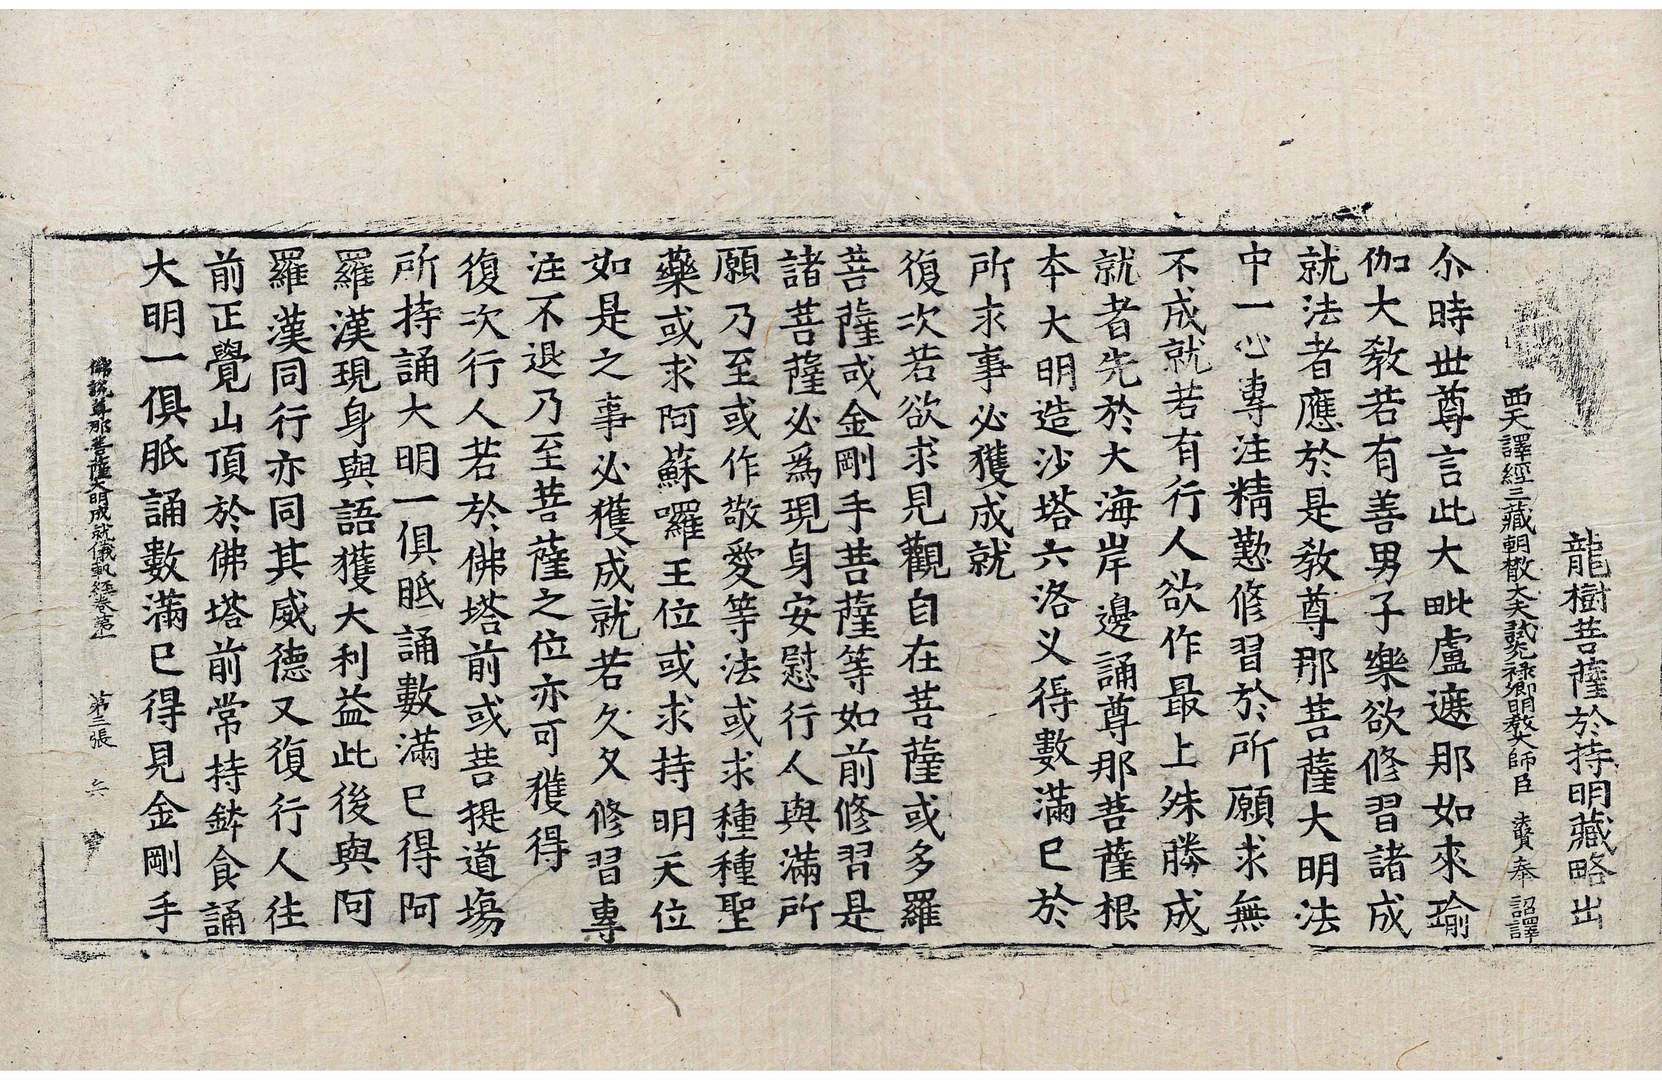 龍樹菩薩於持明藏略出
西天譯經三藏朝散大夫試光祿卿明教大師臣 法賢奉 詔譯
尒時世尊言此大毗盧遮那如來瑜
伽大敎若有善男子樂欲修習諸成
就法者應於是敎尊那菩薩大明法
中一心專注精懃修習於所願求無
不成就若有行人欲作最上殊勝成
就者先於大海岸邊誦尊那菩薩根
本大明造沙塔六洛义得數滿已於
所求事必獲成就
復次若欲求見觀自在菩薩或多羅
菩薩或金剛手菩薩等如前修習是
諸菩薩必爲現身安慰行人與滿所
願乃至或作敬愛等法或求種種聖
藥或求阿蘇囉王位或求持明天位
如是之事必獲成就若久久修習專
注不退乃至菩薩之位亦可獲得
復次行人若於佛塔前或菩提道場
所持誦大明一俱胝誦數滿已得阿
羅漢現身與語獲大利益此後與阿
羅漢同行亦同其威德又復行人往
前正覺山頂於佛塔前常持鉢食誦
大明一俱胝誦數滿已得見金剛手
佛說尊那菩薩大明成就儀軌經卷第一 第三張 兵